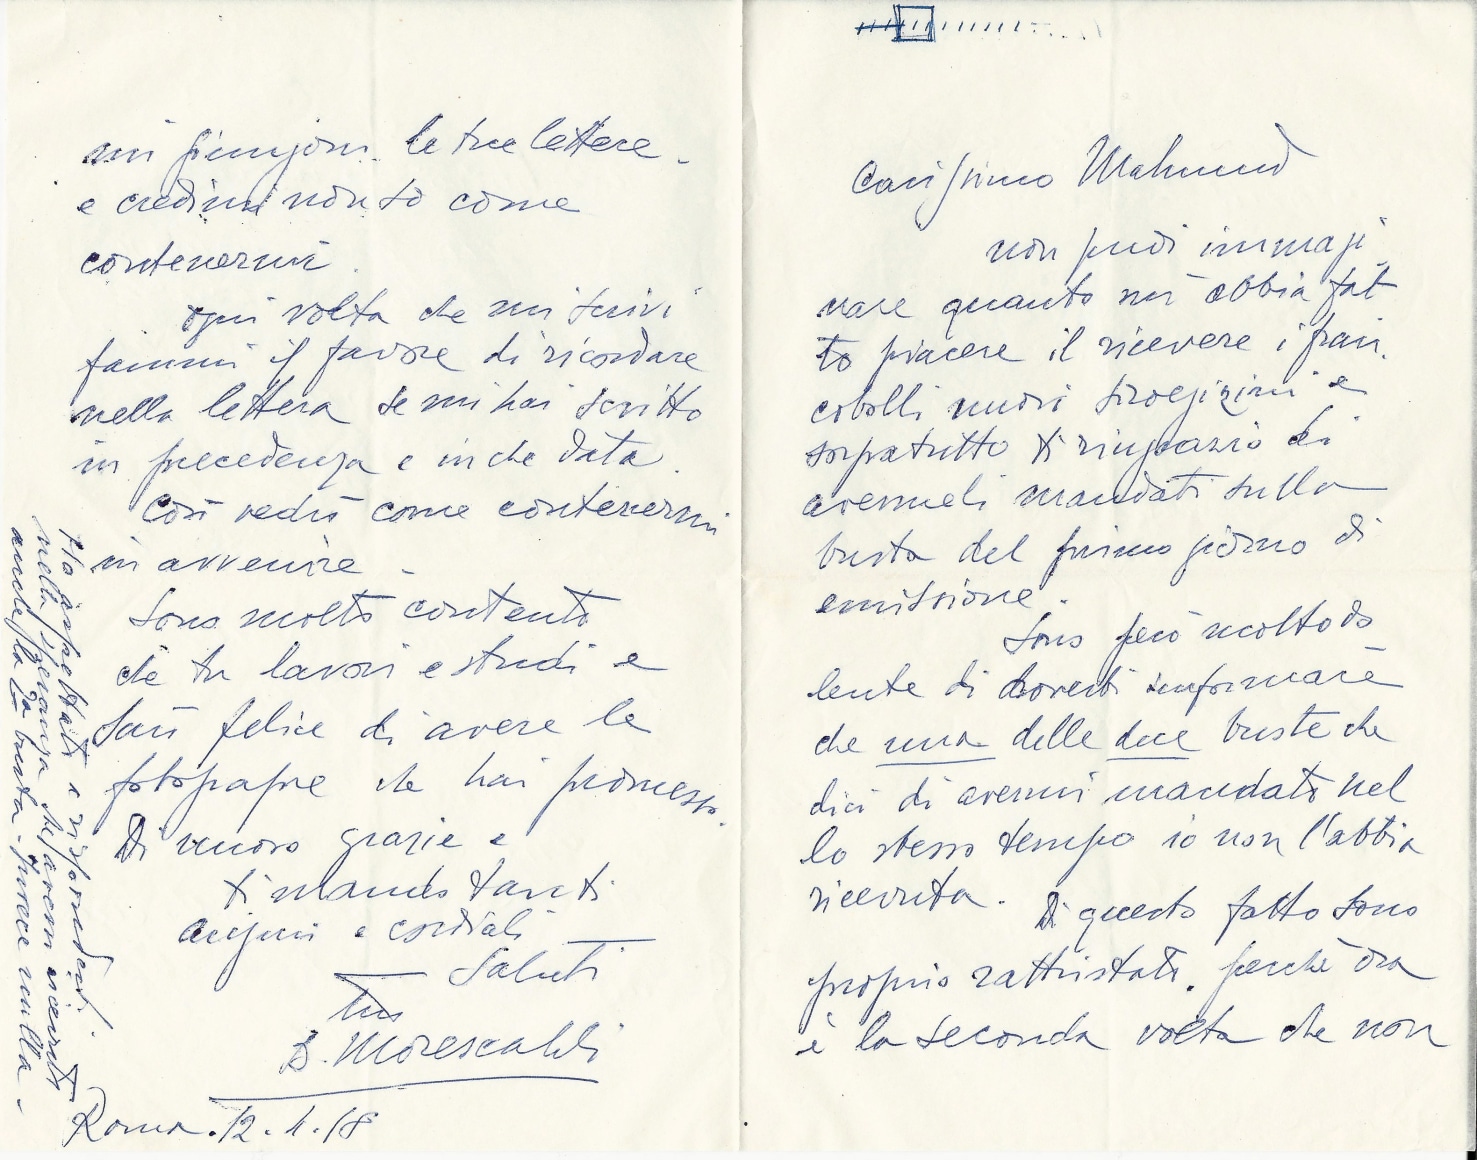 Carissimo Mahmud
non puoi immagi
nare quanto mi abbia fat
to piacere il ricevere i fran.
cobolli nuovi siroegizini e
sopratutto ti ringrazio di
avermeli mandati sulla
busta del primo giorno di
emissione.
Sono però molto do
lente di doverti informare
che una delle due buste che
dici di avermi mandato nel
lo stesso tempo io non l'abbia
ricevuta. Di questo fatto sono
proprio rattristato. perchè ora
è la seconda volta che non
mi giungono le tue lettere -
e credimi non so come
contenermi.
ogni volta che mi scrivi
fammi il favore di ricordare
nella lettera se mi hai scritto
in precedenza e in che data.
Così vedrò come contenermi
in avvenire -
Sono molto contento
che tu lavori e studi e
sarò felice di avere le
fotografie che hai promesso.
Di nuovo grazie e
ti mando tanti
auguri e cordiali
Saluti
tuo
B. Morescalchi
Roma. 12. 1. 18
Ho aspettato a risponderti
nella speranza che avessi ricevuto
anche la busta - Invece nulla -